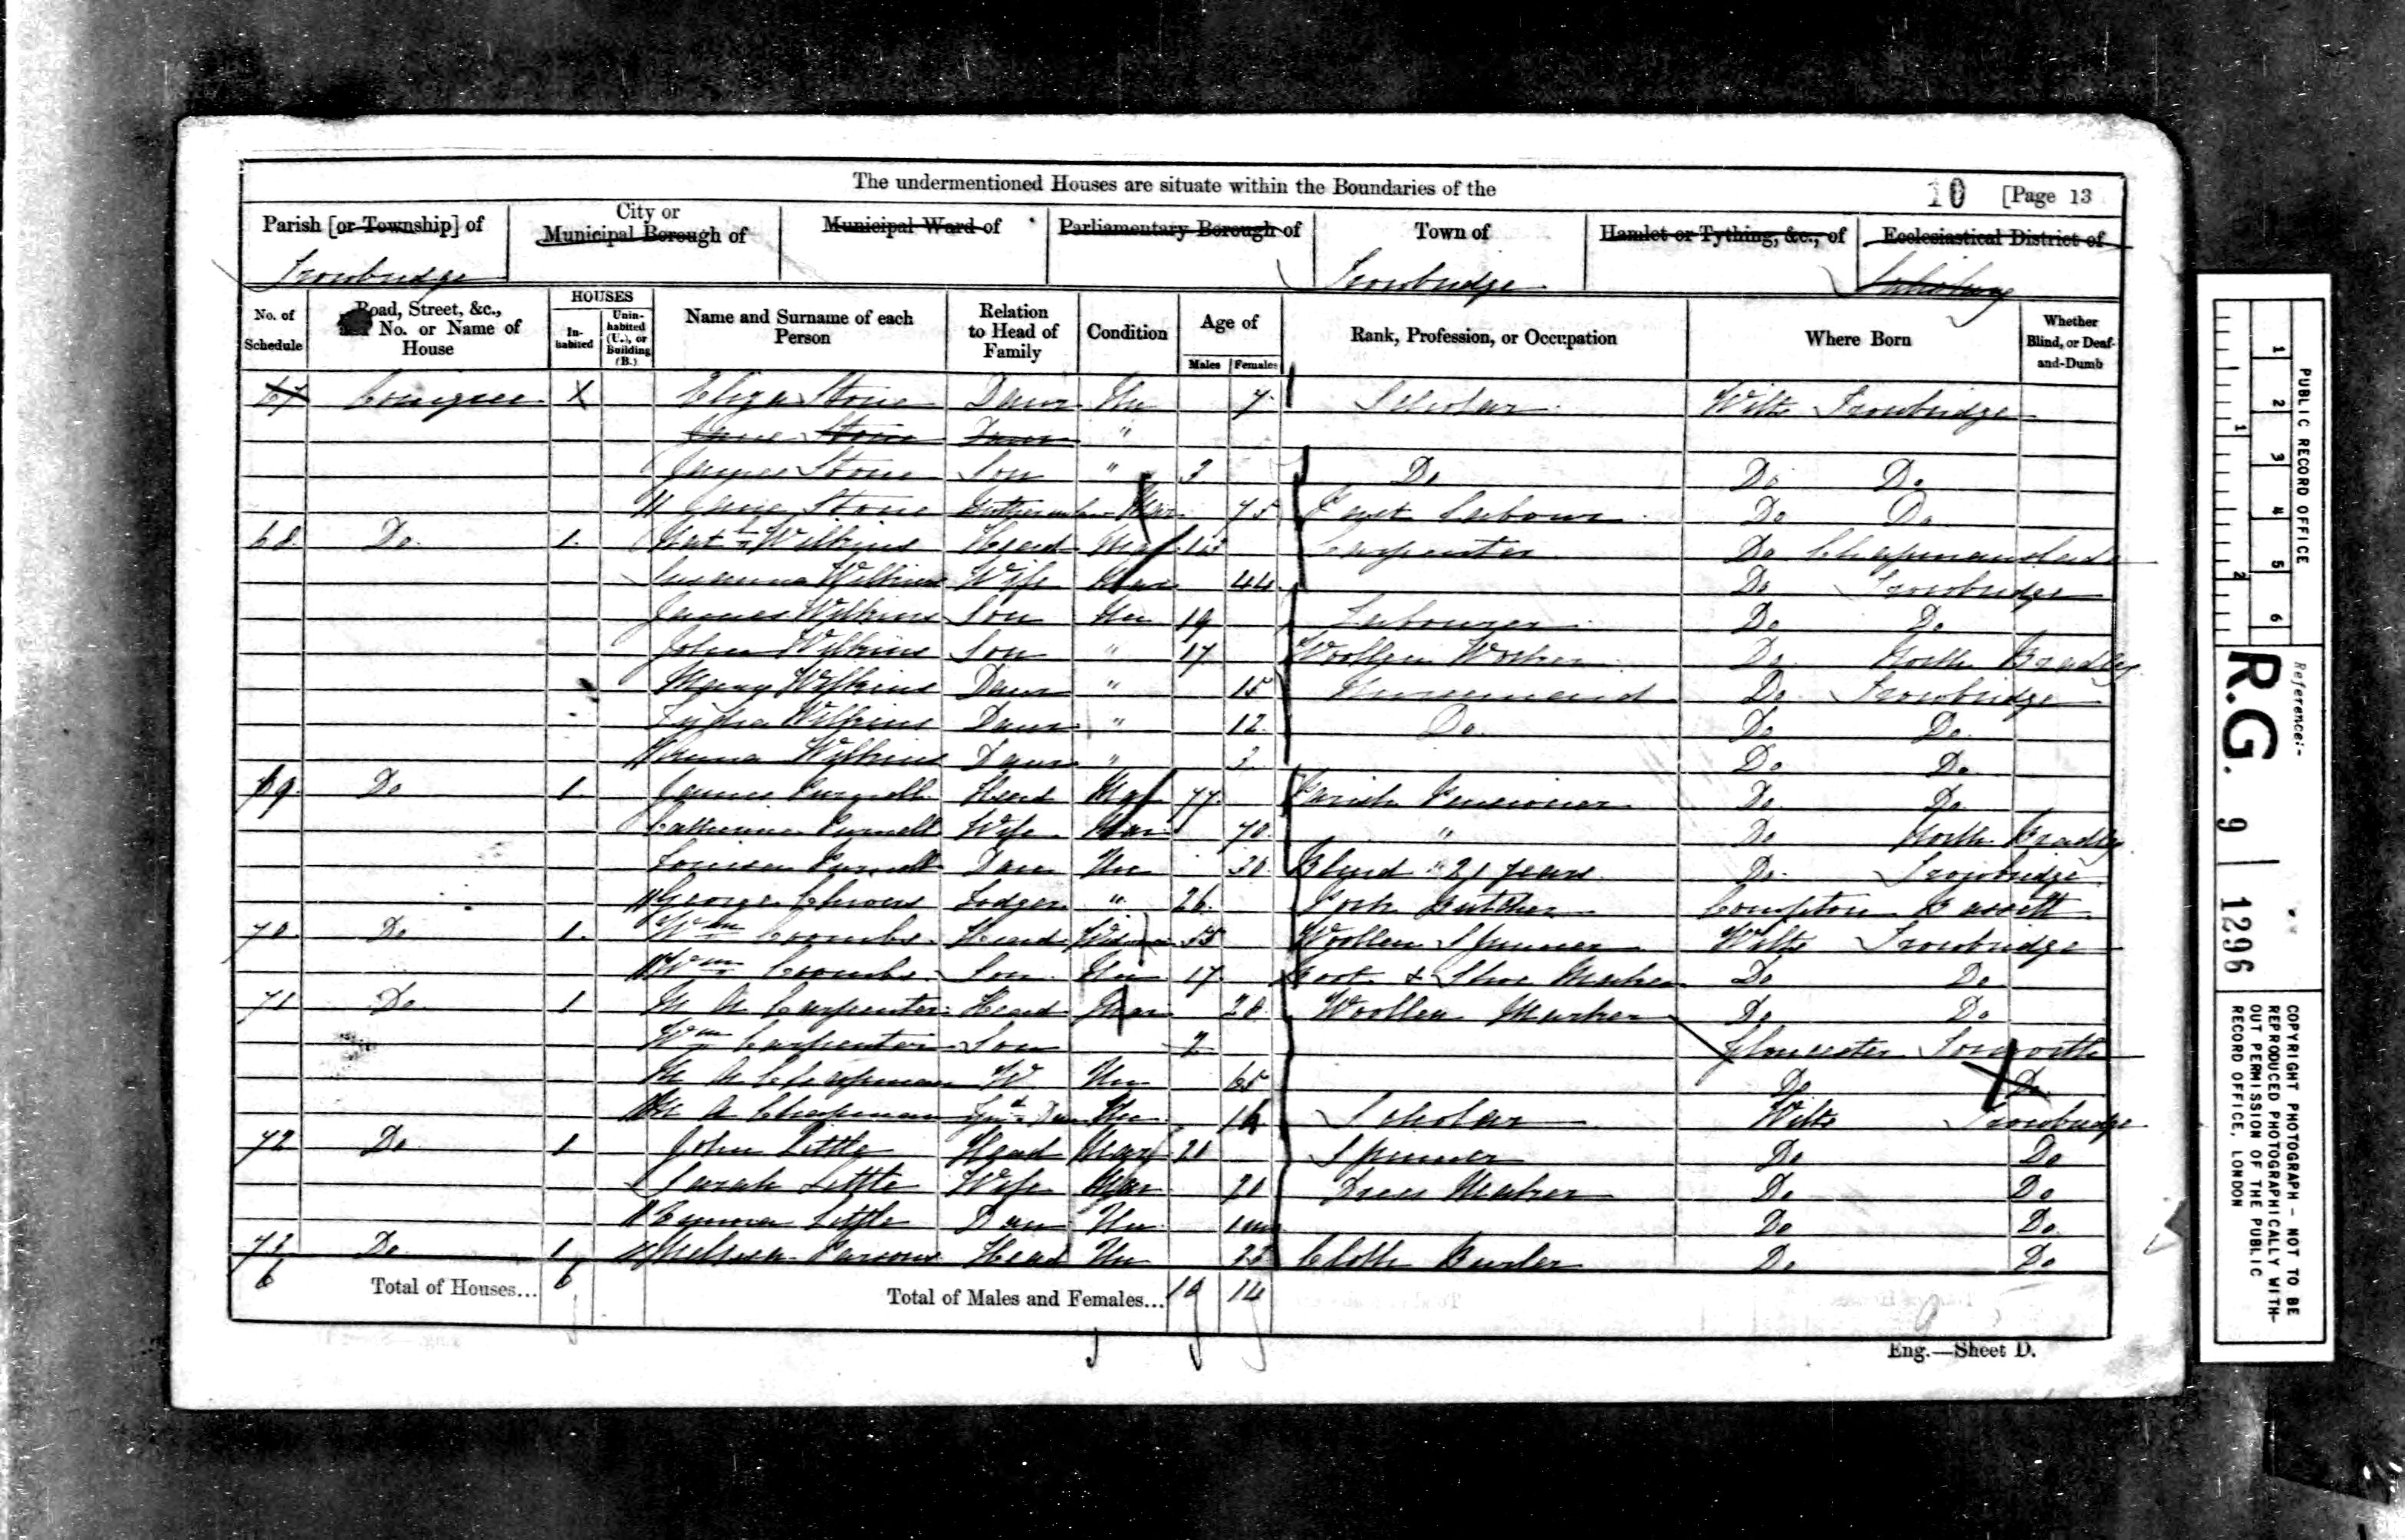 The undermentioned Houses are situate within the Boundaries of the
10 [Page 13
Parish [or Township] of City or Municipal Borough of Municipal Ward of Parliamentary Borough of Town of Hamlet or Tything, &c., of Ecclesiastical District of
Trowbridge Trowbridge
No. of Schedule Road, Street, &c., and No. or Name of House HOUSES In-habited Unin-habited (U.), or Building (B.) Name and Surname of each Person Relation to Head of Family Condition Age of Males Females Rank, Profession, or Occupation Where Born Whether Blind, or Deaf-and-Dumb
67 Conigree X Eliza Stone Daur Un 7 Scholar Wilts Trowbridge
Jane Stone Daur "
James Stone Son " 3 Do Do Do
Jane Stone 75 Do Do
68 Do 1 Wilkins Head Mar Carpenter Do Chapmanslade
Susanna Wilkins Wife Mar 44 Do Trowbridge
James Wilkins Son Un 19 Labourer Do Do
John Wilkins Son " 17 Woollen Do North Bradley
Mary Wilkins Daur " 15 Nursemaid Do Trowbridge
Lydia Wilkins Daur " 12 Do Do Do
Wilkins Daur " 3 Do Do
69 Do 1 James Purnell Head Mar 77 Parish Pensioner Do Do
Catherine Purnell Wife Mar 70 " Do North Bradley
Louisa Purnell Daur Un 30 Blind " 21 years Do Trowbridge
George Lodger " 26 Pork Butcher Compton Bassett
70 Do 1 Wm Coombs Head 55 Woollen Spinner Wilts Trowbridge
Wm Coombs Son Un 17 Boot & Shoe Maker Do Do
71 Do 1 M A Carpenter Head Mar 20 Woollen Do Do
Wm Carpenter Son 2 Gloucester
M A Chapman W Un 65 Do Do
M A Chapman Gd Daur Un Scholar Wilts Trowbridge
72 Do 1 John Little Head Mar 20 Spinner Do Do
Sarah Little Wife Mar 20 Dress Maker Do Do
Emma Little Daur Un 1m Do Do
73 Do 1 Parsons Head Un Cloth Burler Do Do
6 Total of Houses... 6 Total of Males and Females... 10 14
Eng.—Sheet D.
1 2 3 4 5 6
1 2
PUBLIC RECORD OFFICE
Reference:-
R.G. 9 / 1296
COPYRIGHT PHOTOGRAPH - NOT TO BE
REPRODUCED PHOTOGRAPHICALLY WITH-
OUT PERMISSION OF THE PUBLIC
RECORD OFFICE, LONDON